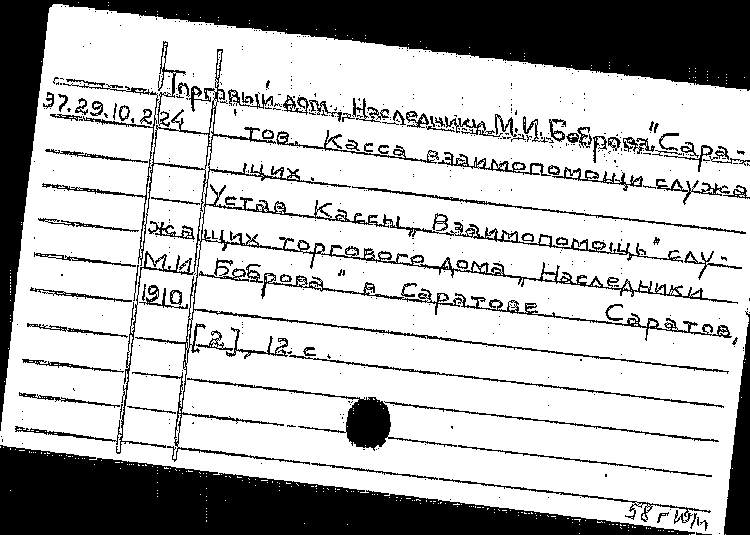 Торговый дом „Наследники М.И. Боброва". Сара-
37.29.10.224
тов. Касса взаимопомощи служа
щих.
Устав Кассы „Взаимопомощь" слу-
жащих торгового дома „Наследники
М.И. Боброва" в Саратове. Саратов,
1910.
[2], 12 с.